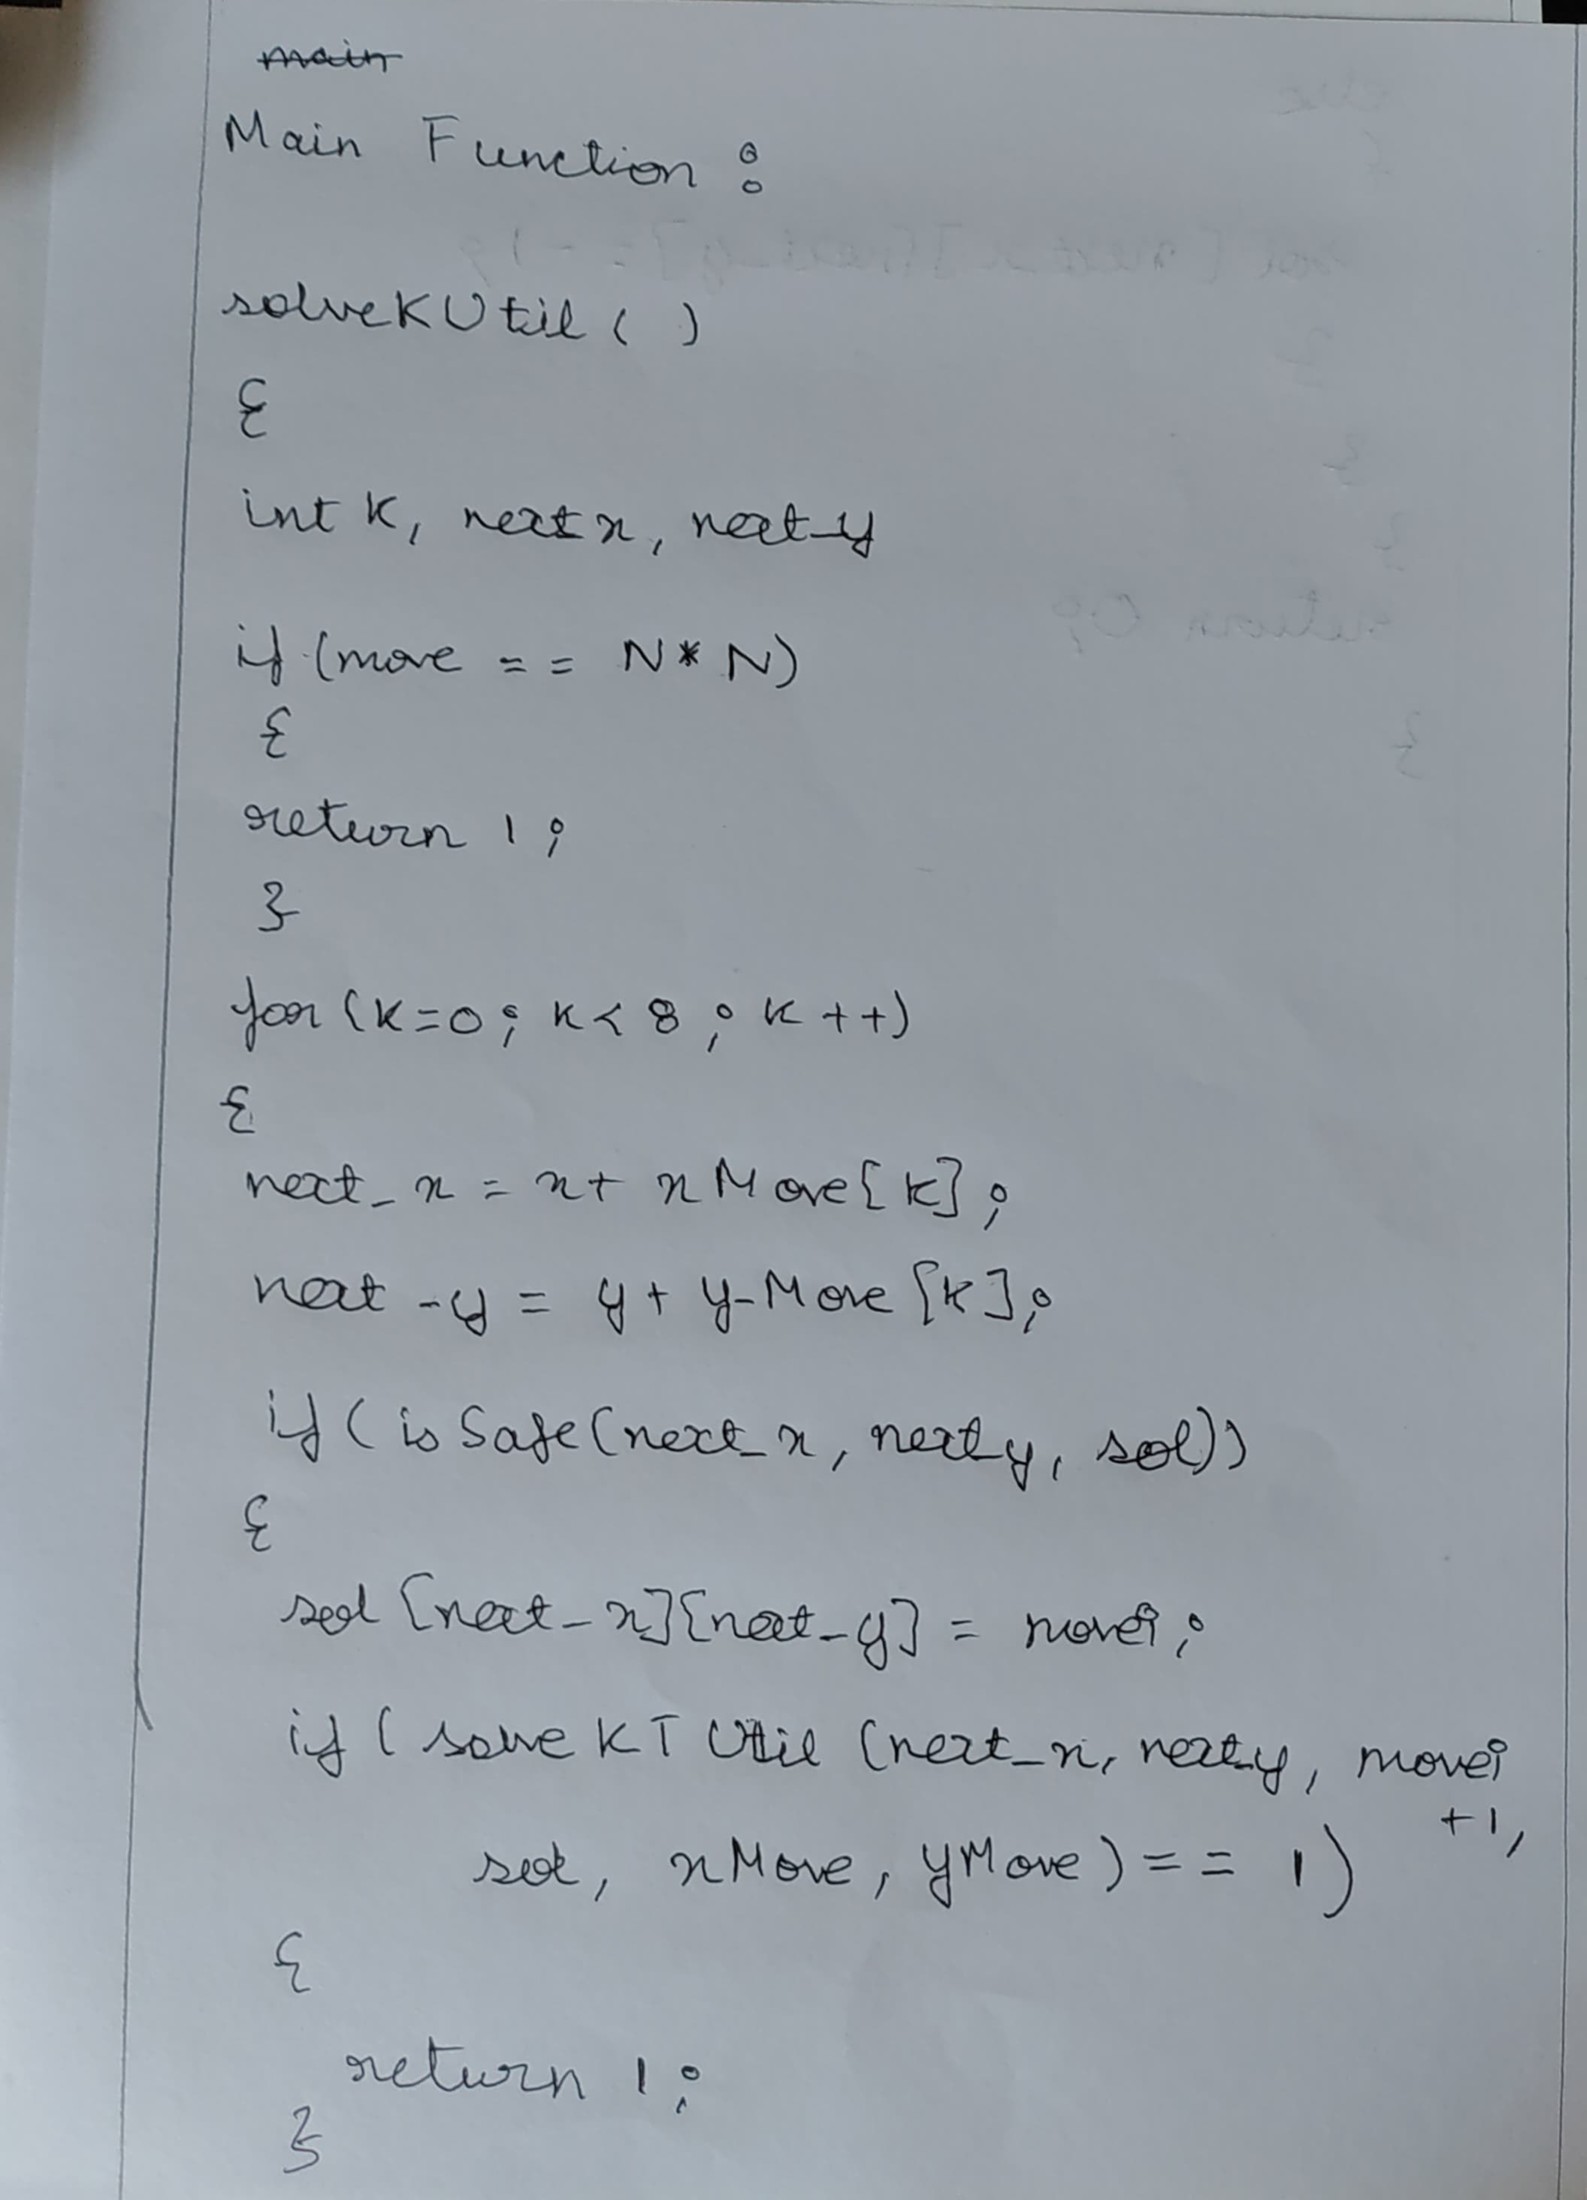 main
Main Function :
solveKUtil ( )
{
int K, next x, next_y
if (move == N * N)
{
return 1 ;
}
for (K=0; K< 8 ; K ++)
{
next_x = x+ xMove[k] ;
next -y = y + y-Move [k] ;
if ( is Safe (next_x, next y, sol))
{
sol [next_x][next_y] = movei ;
if ( solve KT Util (next_x, next y, movei
+1,
sol, xMove, yMove) == 1)
{
return 1 ;
}